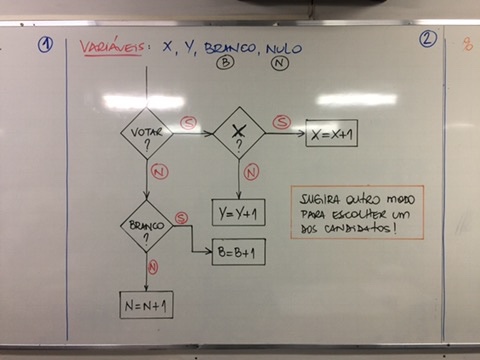 1
VARIÁVEIS: X, Y, BRANCO, NULO
B N
2
VOTAR?
S
X?
S
X=X+1
N
N
Y=Y+1
BRANCO?
S
B=B+1
N
N=N+1
SUGIRA OUTRO MODO
PARA ESCOLHER UM
DOS CANDIDATOS!